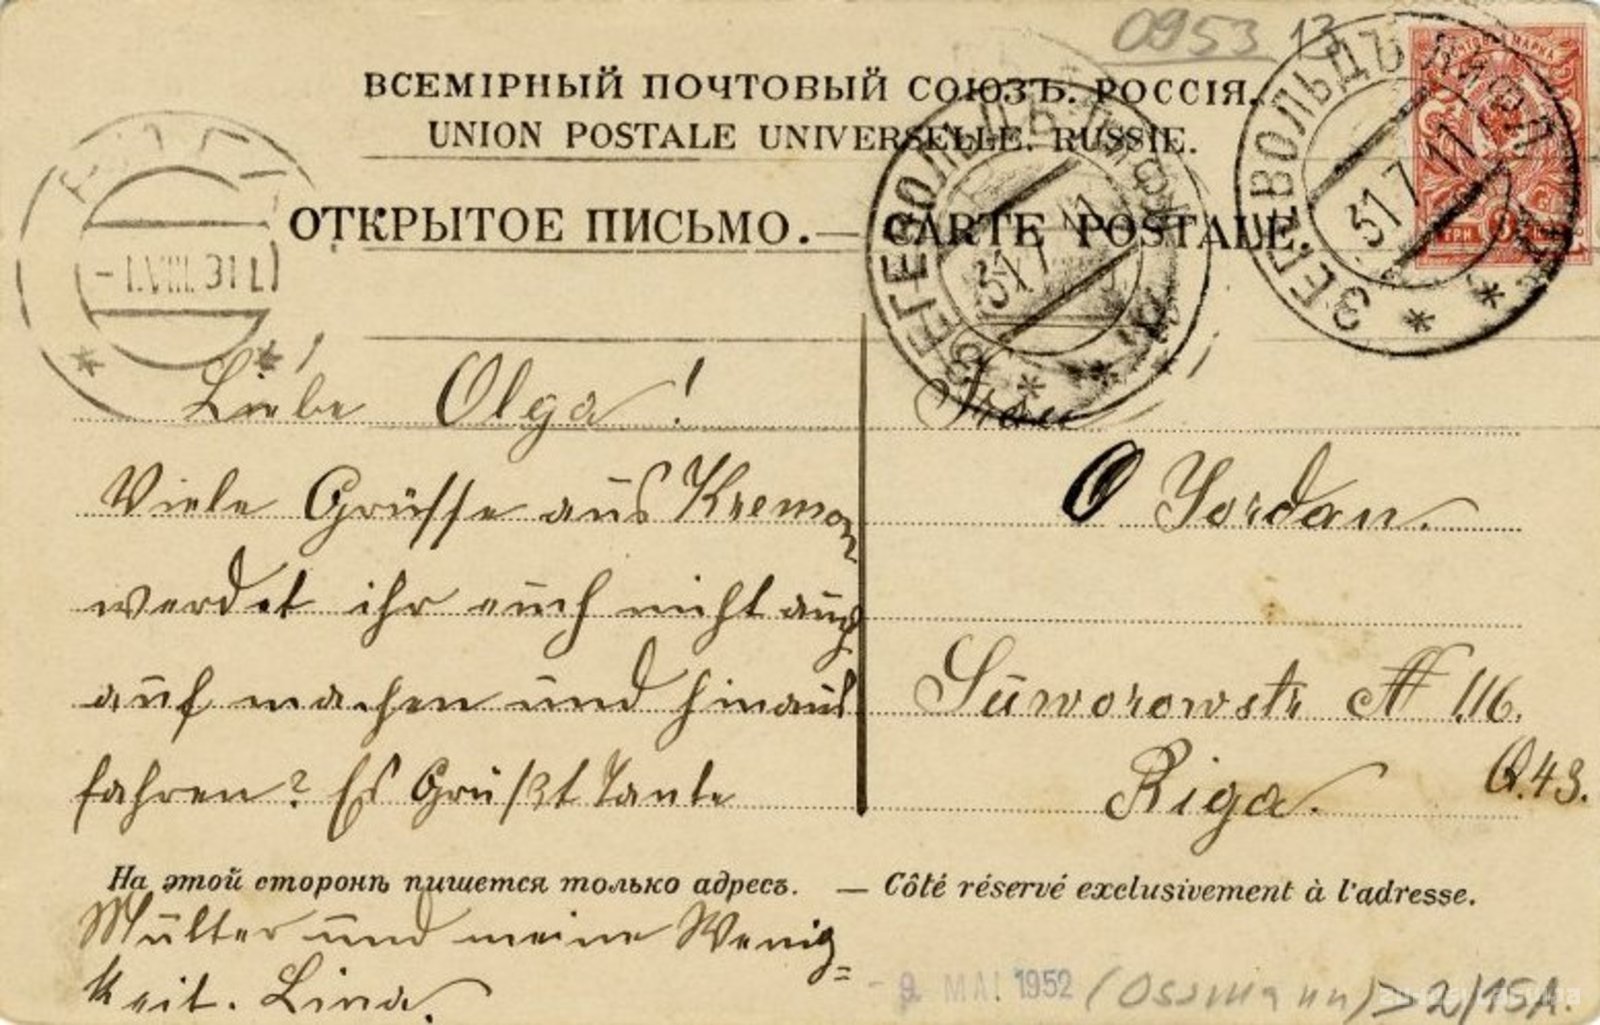 0953 12
ВСЕМІРНЫЙ ПОЧТОВЫЙ СОЮЗЪ. РОССІЯ.
UNION POSTALE UNIVERSELLE. RUSSIE.
ОТКРЫТОЕ ПИСЬМО. — CARTE POSTALE.
ЗЕГЕВОЛЬДЪ ЛИФЛ.
31 7 11
ЗЕГЕВОЛЬДЪ ЛИФЛ.
31 7 11
ПОЧТОВАЯ МАРКА
ТРИ 3 КОП
-1.VIII.911
Liebe Olga!
Viele Grüsse aus Kremon
werdet ihr euch nicht auch
auf machen und hinaus
fahren? Es Grüßt Tante
Mutter und meine Wenig=
keit. Lina.
Frau
O Jordan.
Suworowstr № 116.
Riga. Q.43.
На этой сторонѣ пишется только адресъ. — Côté réservé exclusivement à l'adresse.
- 9. MAI 1952 (Ossmann) 2/15A.